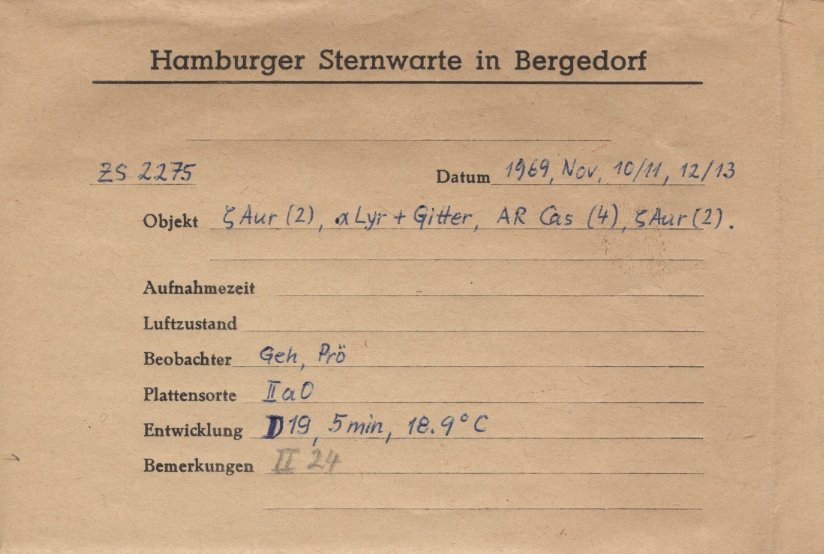 Hamburger Sternwarte in Bergedorf
ZS 2275 Datum 1969, Nov, 10/11, 12/13
Objekt ζ Aur (2), α Lyr + Gitter, AR Cas (4), ζ Aur (2).
Aufnahmezeit
Luftzustand
Beobachter Geh, Prö
Plattensorte IIaO
Entwicklung D19, 5min, 18.9°C
Bemerkungen II 24